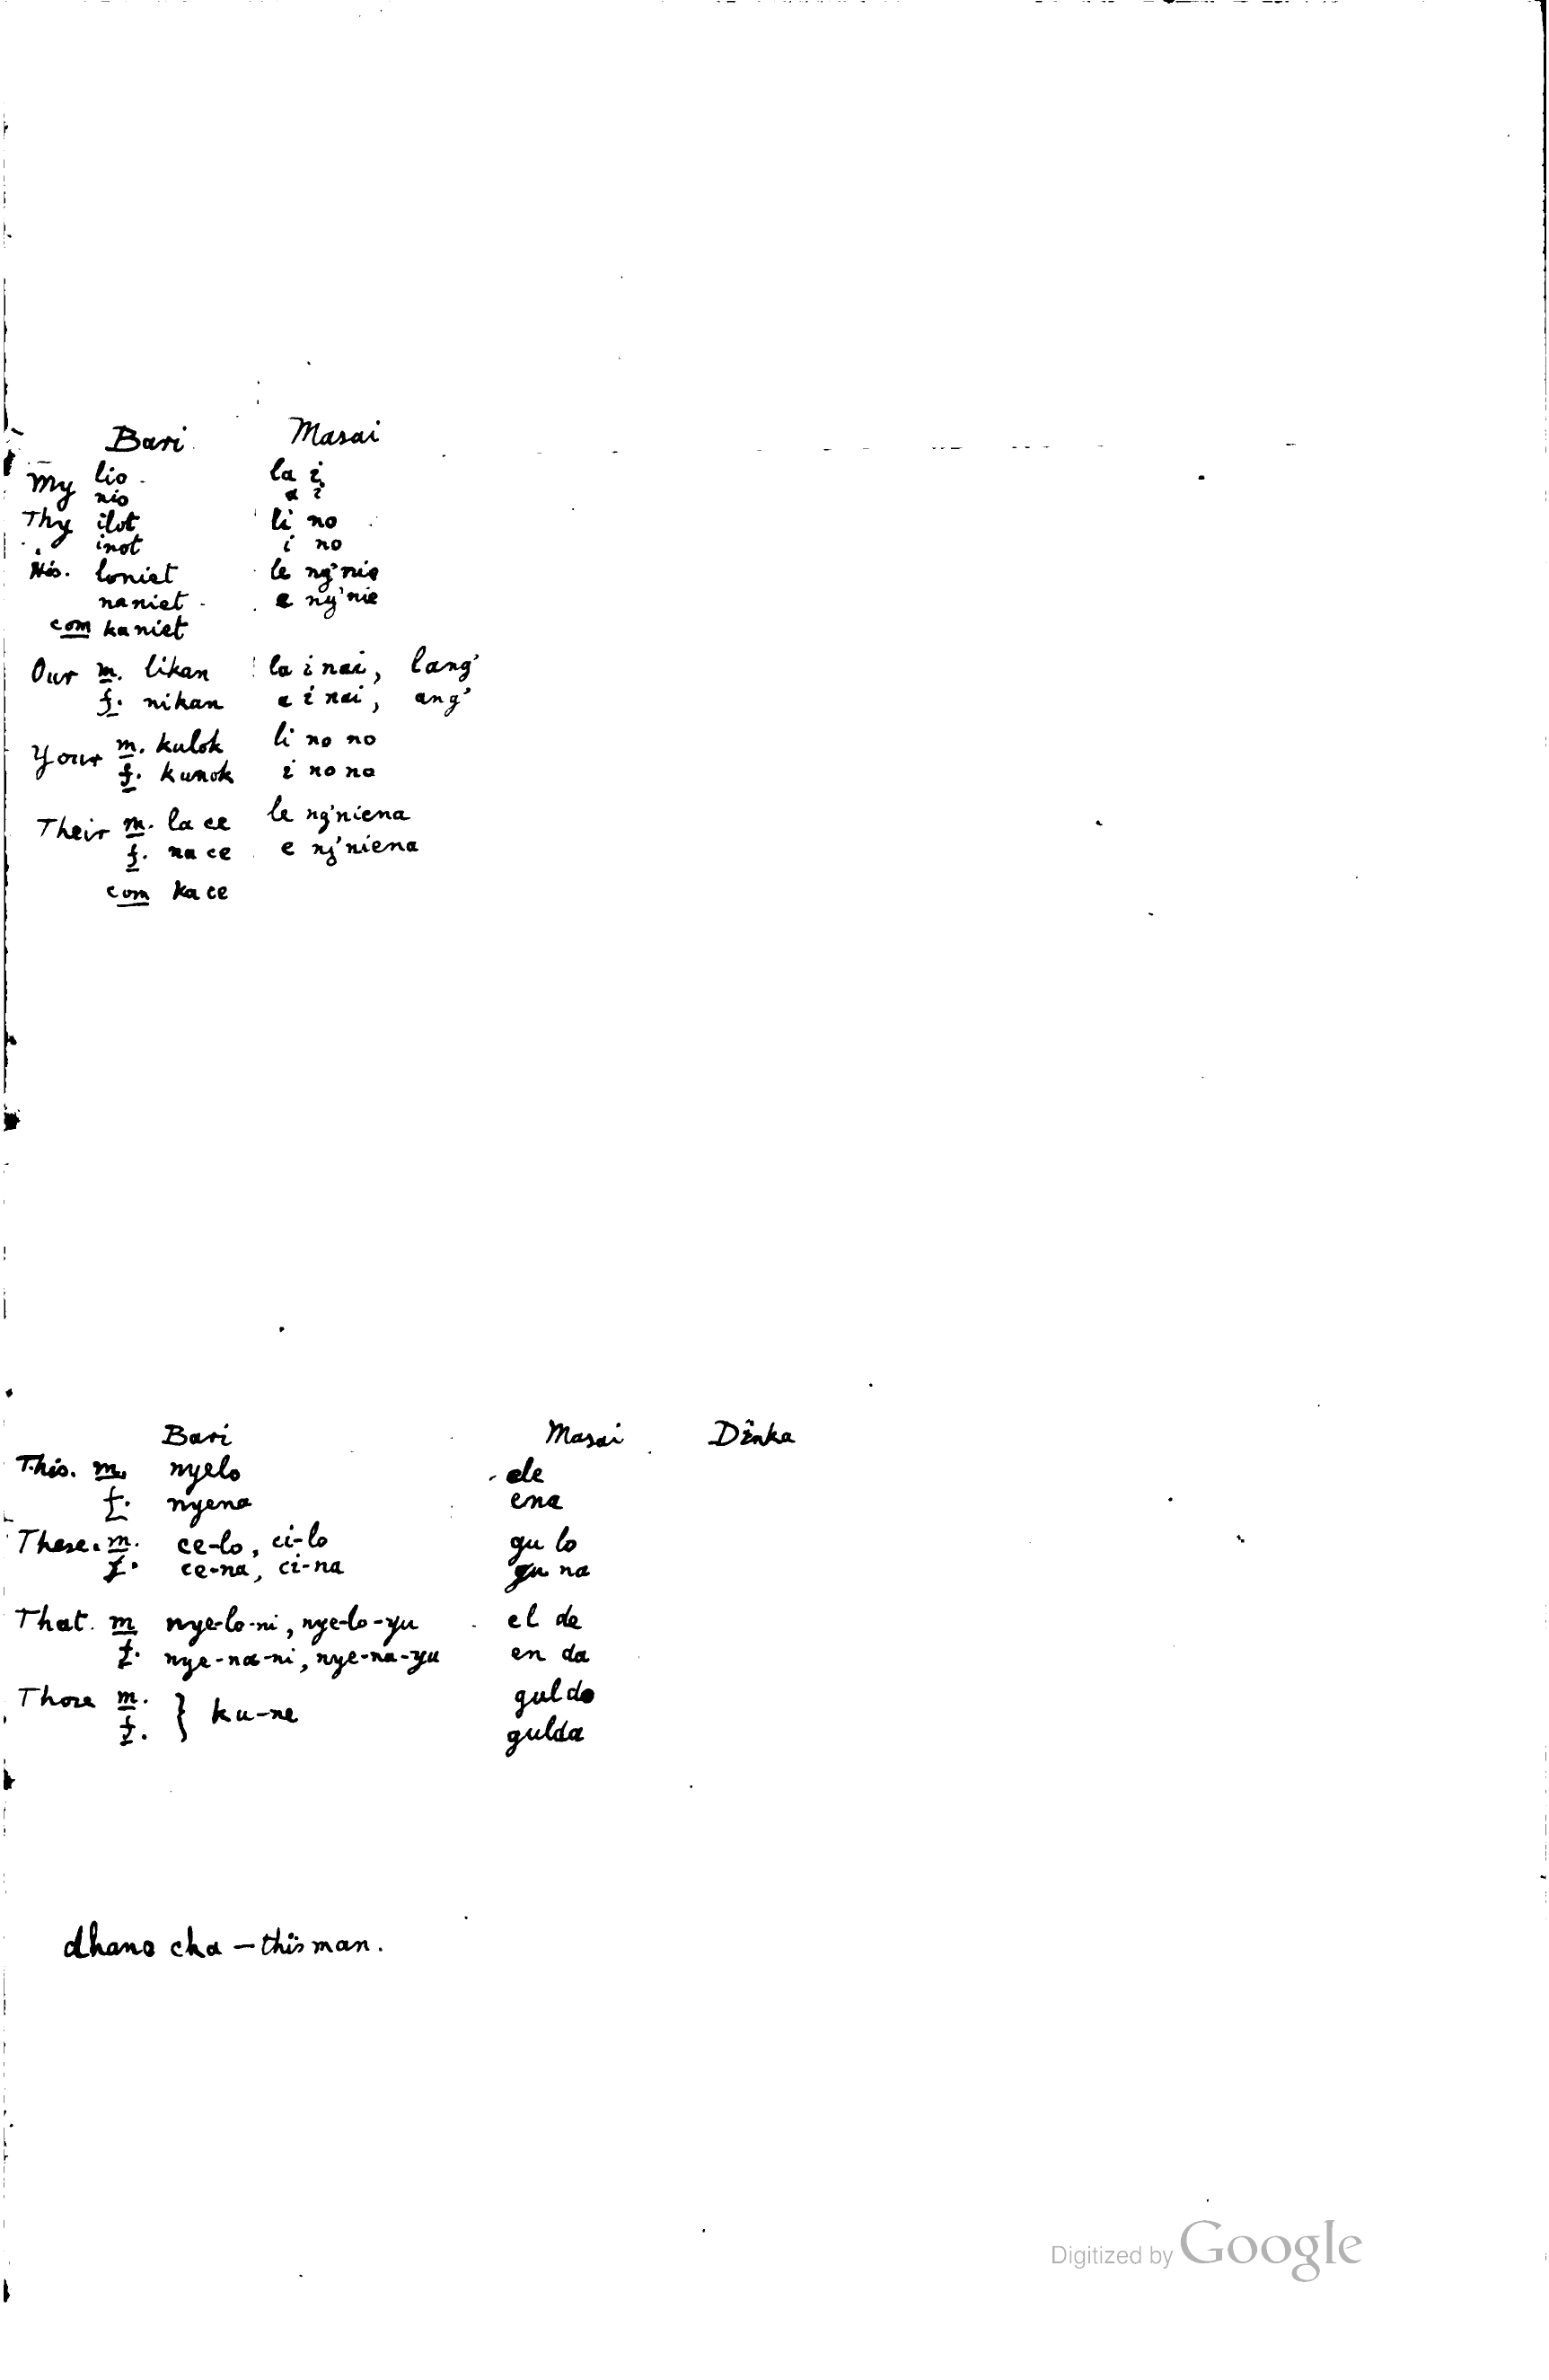 Bari Masai
My lio la i
nio a i
Thy ilot li no
inot i no
His. loniet le ng'nie
naniet e ng'nie
com kaniet
Our m. likan la i nai, lang'
f. nikan a i nai, ang'
Your m. kulok li no no
f. kunok i no no
Their m. la ce le ng'niena
f. na ce e ng'niena
com ka ce
Bari Masai Dinka
This. m. nyelo ele
f. nyena ena
These. m. ce-lo, ci-lo gu lo
f. ce-na, ci-na gu na
That. m nye-lo-ni, nye-lo-yu el de
f. nye-na-ni, nye-na-yu en da
Those m. } ku-ne guldo
f. gulda
dhano cha — this man.
Digitized by Google